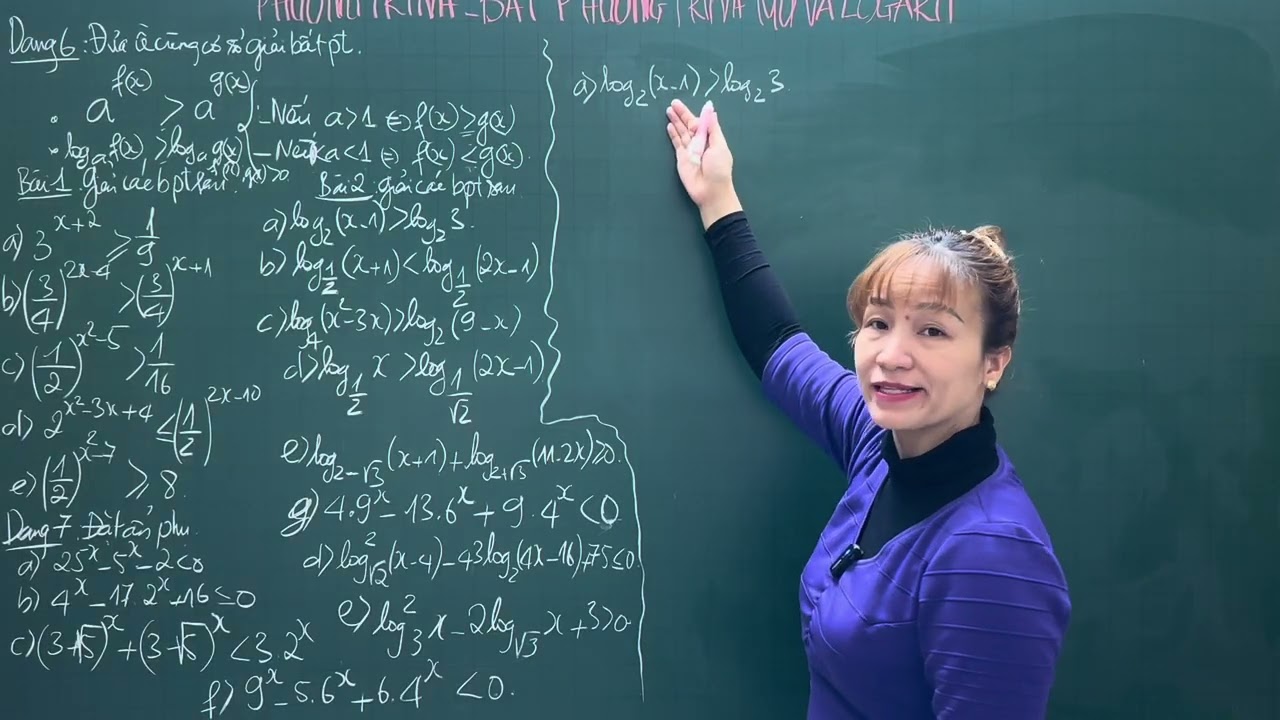 PHƯƠNG TRÌNH - BẤT PHƯƠNG TRÌNH MŨ VÀ LOGARIT
Dạng 6: Đưa về cùng cơ số giải bất pt.
. a^f(x) > a^g(x)
- Nếu a > 1 ⇔ f(x) > g(x)
. log_a f(x) > log_a g(x)
- Nếu a < 1 ⇔ f(x) < g(x).
Bài 1: giải các bpt sau:
a) 3^(x+2) ≥ 1/9
b) (3/4)^(2x-4) > (3/4)^(x+1)
c) (1/2)^(x²-5) > 1/16
d) 2^(x²-3x+4) ≤ (1/2)^(2x-10)
e) (1/2)^(x²-7) ≥ 8.
Dạng 7: Đặt ẩn phụ.
a) 25^x - 5^x - 2 < 0
b) 4^x - 17.2^x + 16 ≤ 0
c) (3-√5)^x + (3-√5)^x < 3.2^x
Bài 2: giải các bpt sau
a) log_2 (x-1) > log_2 3.
b) log_(1/2) (x+1) < log_(1/2) (2x-1)
c) log_4 (x²-3x) > log_2 (9-x)
d) log_(1/2) x > log_(1/√2) (2x-1)
e) log_(2-√3) (x+1) + log_(2+√3) (11-2x) ≥ 0.
g) 4.9^x - 13.6^x + 9.4^x < 0
d) log²_√2 (x-4) - 43log_2 (4x-16) + 75 ≤ 0
e) log²_3 x - 2log_√3 x + 3 > 0
f) 9^x - 5.6^x + 6.4^x < 0.
a) log_2 (x-1) > log_2 3.